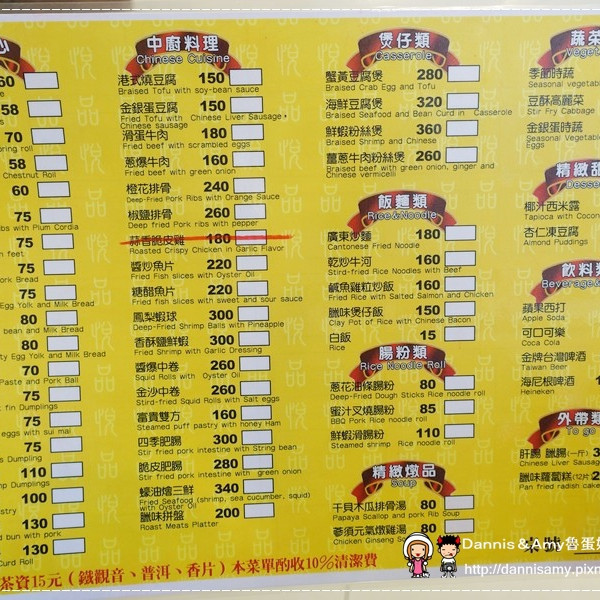 少
60
58
70
ring roll
58
Chestnut Roll
60
75
ibs with Plum Cordia
75
n feet
75
ork Bread
75
Egg Yolk and Milk Bread
80
bean and Milk Bread
80
ty Egg Yolk and Milk Bread
70
Paste and Pork Ball
75
k fin Dumplings
75
eggs with sui mai
75
s Dumpling
110
mp Dumplings
100
stry
130
d bun with pork
130
Curd Roll
中廚料理
Chinese Cuisine
港式燒豆腐 150
Braised Tofu with soy-bean sauce
金銀蛋豆腐 150
Fried Tofu with Chinese Liver Sausage,
Chinese sausage
滑蛋牛肉 180
Fried beef with scrambled eggs
蔥爆牛肉 160
Fried beef with green onion
橙花排骨 240
Deep-Fried Pork Ribs with Orange Sauce
椒鹽排骨 260
Deep fried Pork ribs with pepper
蒜香脆皮雞 180
Roasted Crispy Chicken in Garlic Flavor
醬炒魚片 220
Fried fish slices with Oyster Oil
糖醋魚片 220
Fried fish slices with sweet and sour sauce
鳳梨蝦球 300
Deep-Fried Shrimp Balls with Pineapple
香酥鹽鮮蝦 300
Fried Shrimp with Garlic Dressing
醬爆中卷 260
Squid Rolls with Oyster Oil
金沙中卷 260
Stird-fried Squid Rolls with Salt eggs
富貴雙方 160
Steamed puff pastry with honey Ham
四季肥腸 300
Stir fried pork intestine with String bean
脆皮肥腸 280
Stir fried pork intestine with green onion
蠔油燴三鮮 340
Fried Seafood (shrimp, sea cucumber, squid)
with Oyster Oil
臘味拼盤 200
Roast Meats Platter
煲仔類
Casserole
蟹黃豆腐煲 280
Braised Crab Egg and Tofu
海鮮豆腐煲 320
Braised Seafood and Bean Curd in Casserole
鮮蝦粉絲煲 360
Braised Shrimp and Chinese
薑蔥牛肉粉絲煲 260
Braised beef with green onion, ginger and
Chinese vermicelli
飯麵類
Rice&Noodle
廣東炒麵 180
Cantonese Fried Noodle
乾炒牛河 160
Stird-fried Rice Noodles with Beef
鹹魚雞粒炒飯 160
Fried Rice with Salted Salmon and Chicken
臘味煲仔飯 150
Clay Pot of Rice with Chinese Bacon
白飯 15
Rice
腸粉類
Rice Noodle Roll
蔥花油條腸粉 80
Deep-Fried Dough Sticks Rice noodle roll
蜜汁叉燒腸粉 85
BBQ Pork Rice noodle roll
鮮蝦滑腸粉 110
Steamed shrimp Rice noodle roll
精緻燉品
Soup
干貝木瓜排骨湯 80
Papaya Scallop and pork Rib Soup
蔘須元氣燉雞湯 80
Chicken Ginseng Soup
蔬菜
Vegeta
季節時蔬
Seasonal vegetable
豆酥高麗菜
Stir Fry Cabbage
金銀蛋時蔬
Seasonal Vegetable
Eggs
精緻甜
Desse
椰汁西米露
Tapioca with Coconu
杏仁凍豆腐
Almond Puddings
飲料類
Beverage&
蘋果西打
Apple Soda
可口可樂
Coca Cola
金牌台灣啤酒
Taiwan Beer
海尼根啤酒 1
Heineken
外帶類
To go
肝腸 臘腸(一斤) 3
Chinese Liver Sausage
臘味蘿蔔糕(12片 2
Pan fried radish cake
茶資15元(鐵觀音、普洱、香片)本菜單酌收10%清潔費
Dannis & Amy魯蛋媽
http://dannisamy.pixn